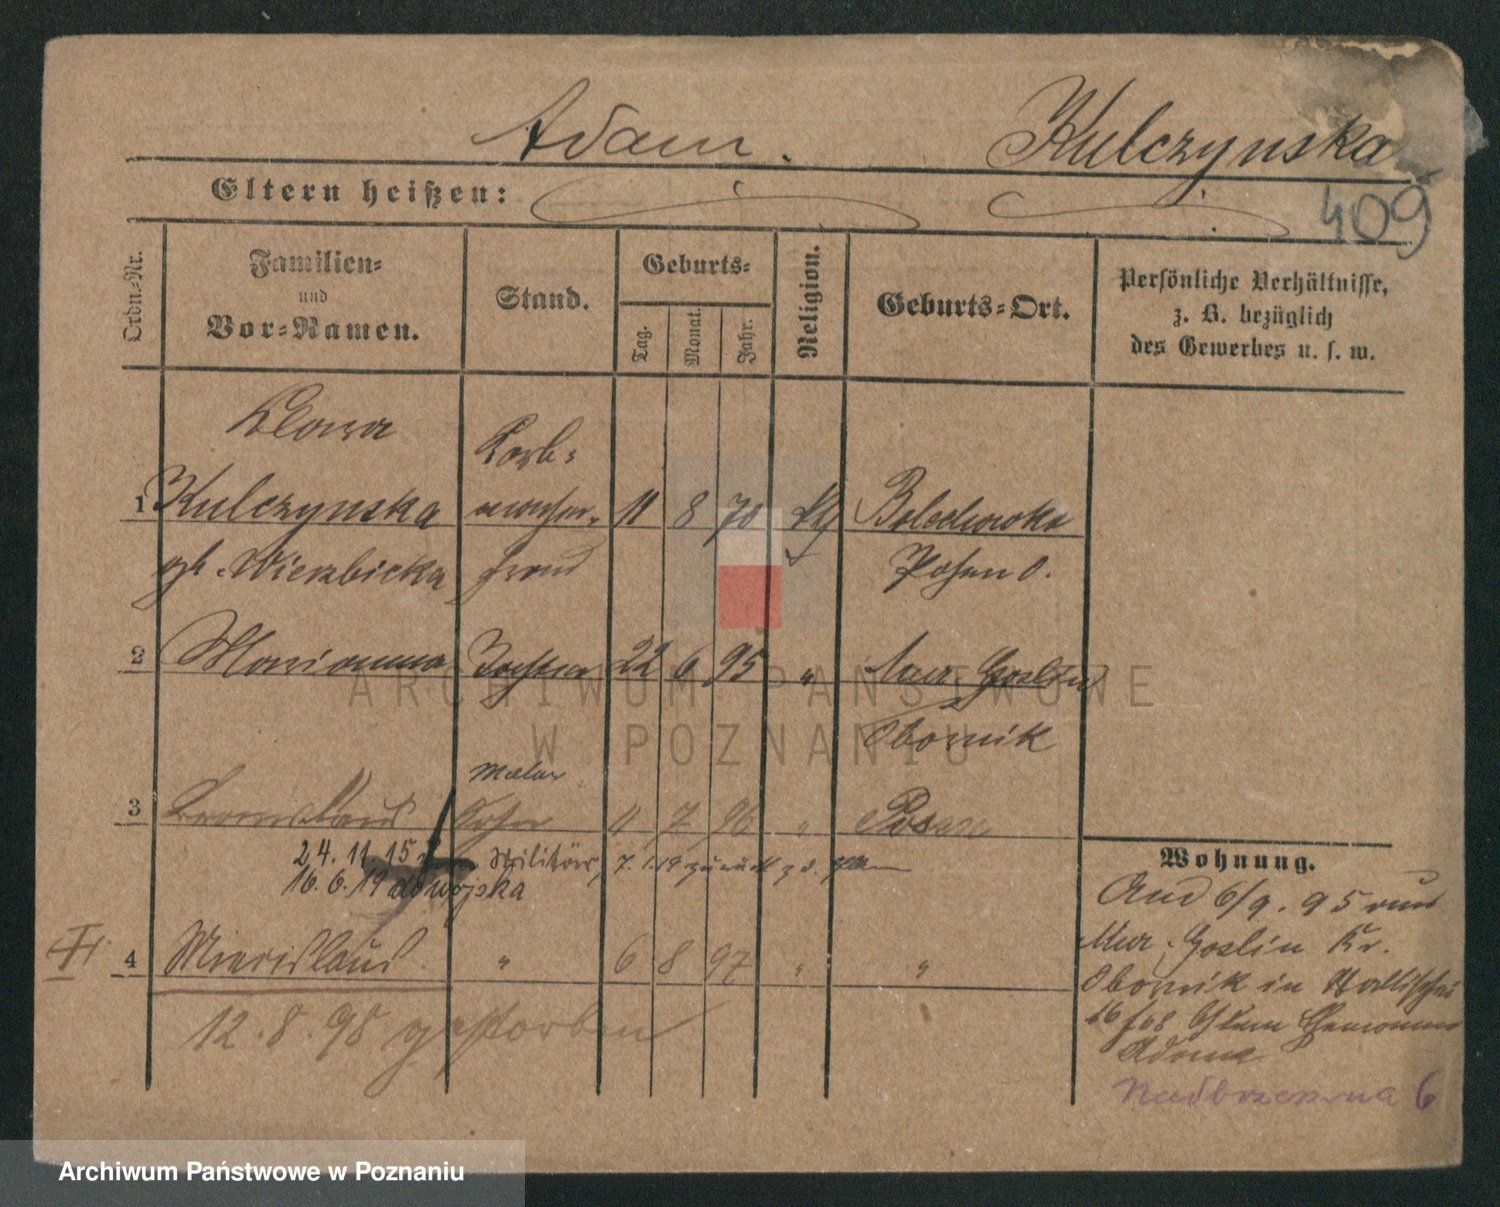 Adam. Kulczynska
Eltern heißen:
409
Ordn.-Nr.
Familien-
und
Vor-Namen.
Stand.
Geburts-
Tag.
Monat.
Jahr.
Religion.
Geburts-Ort.
Persönliche Verhältnisse,
z. B. bezüglich
des Gewerbes u. s. w.
Korb-
1 Kulczynska 11 8 70
gb. Wierzbicka
Posen O.
2 Marianna Tochter 22 6 95 " Mur. Goslin
Obornik
Maler
3 Bronislaus Sohn 11 7 96 " Posen
24.11.15 Militär, 7. 1.19 zurück
16.6.19 do wojska
4 Miecislaus " 6 8 97 " "
12.8.98 gestorben
Wohnung.
And 6/9. 95 von
Mur. Goslin Kr.
Obornik in
16
Nadbrzezna 6
ARCHIWUM PAŃSTWOWE
W POZNANIU
Archiwum Państwowe w Poznaniu